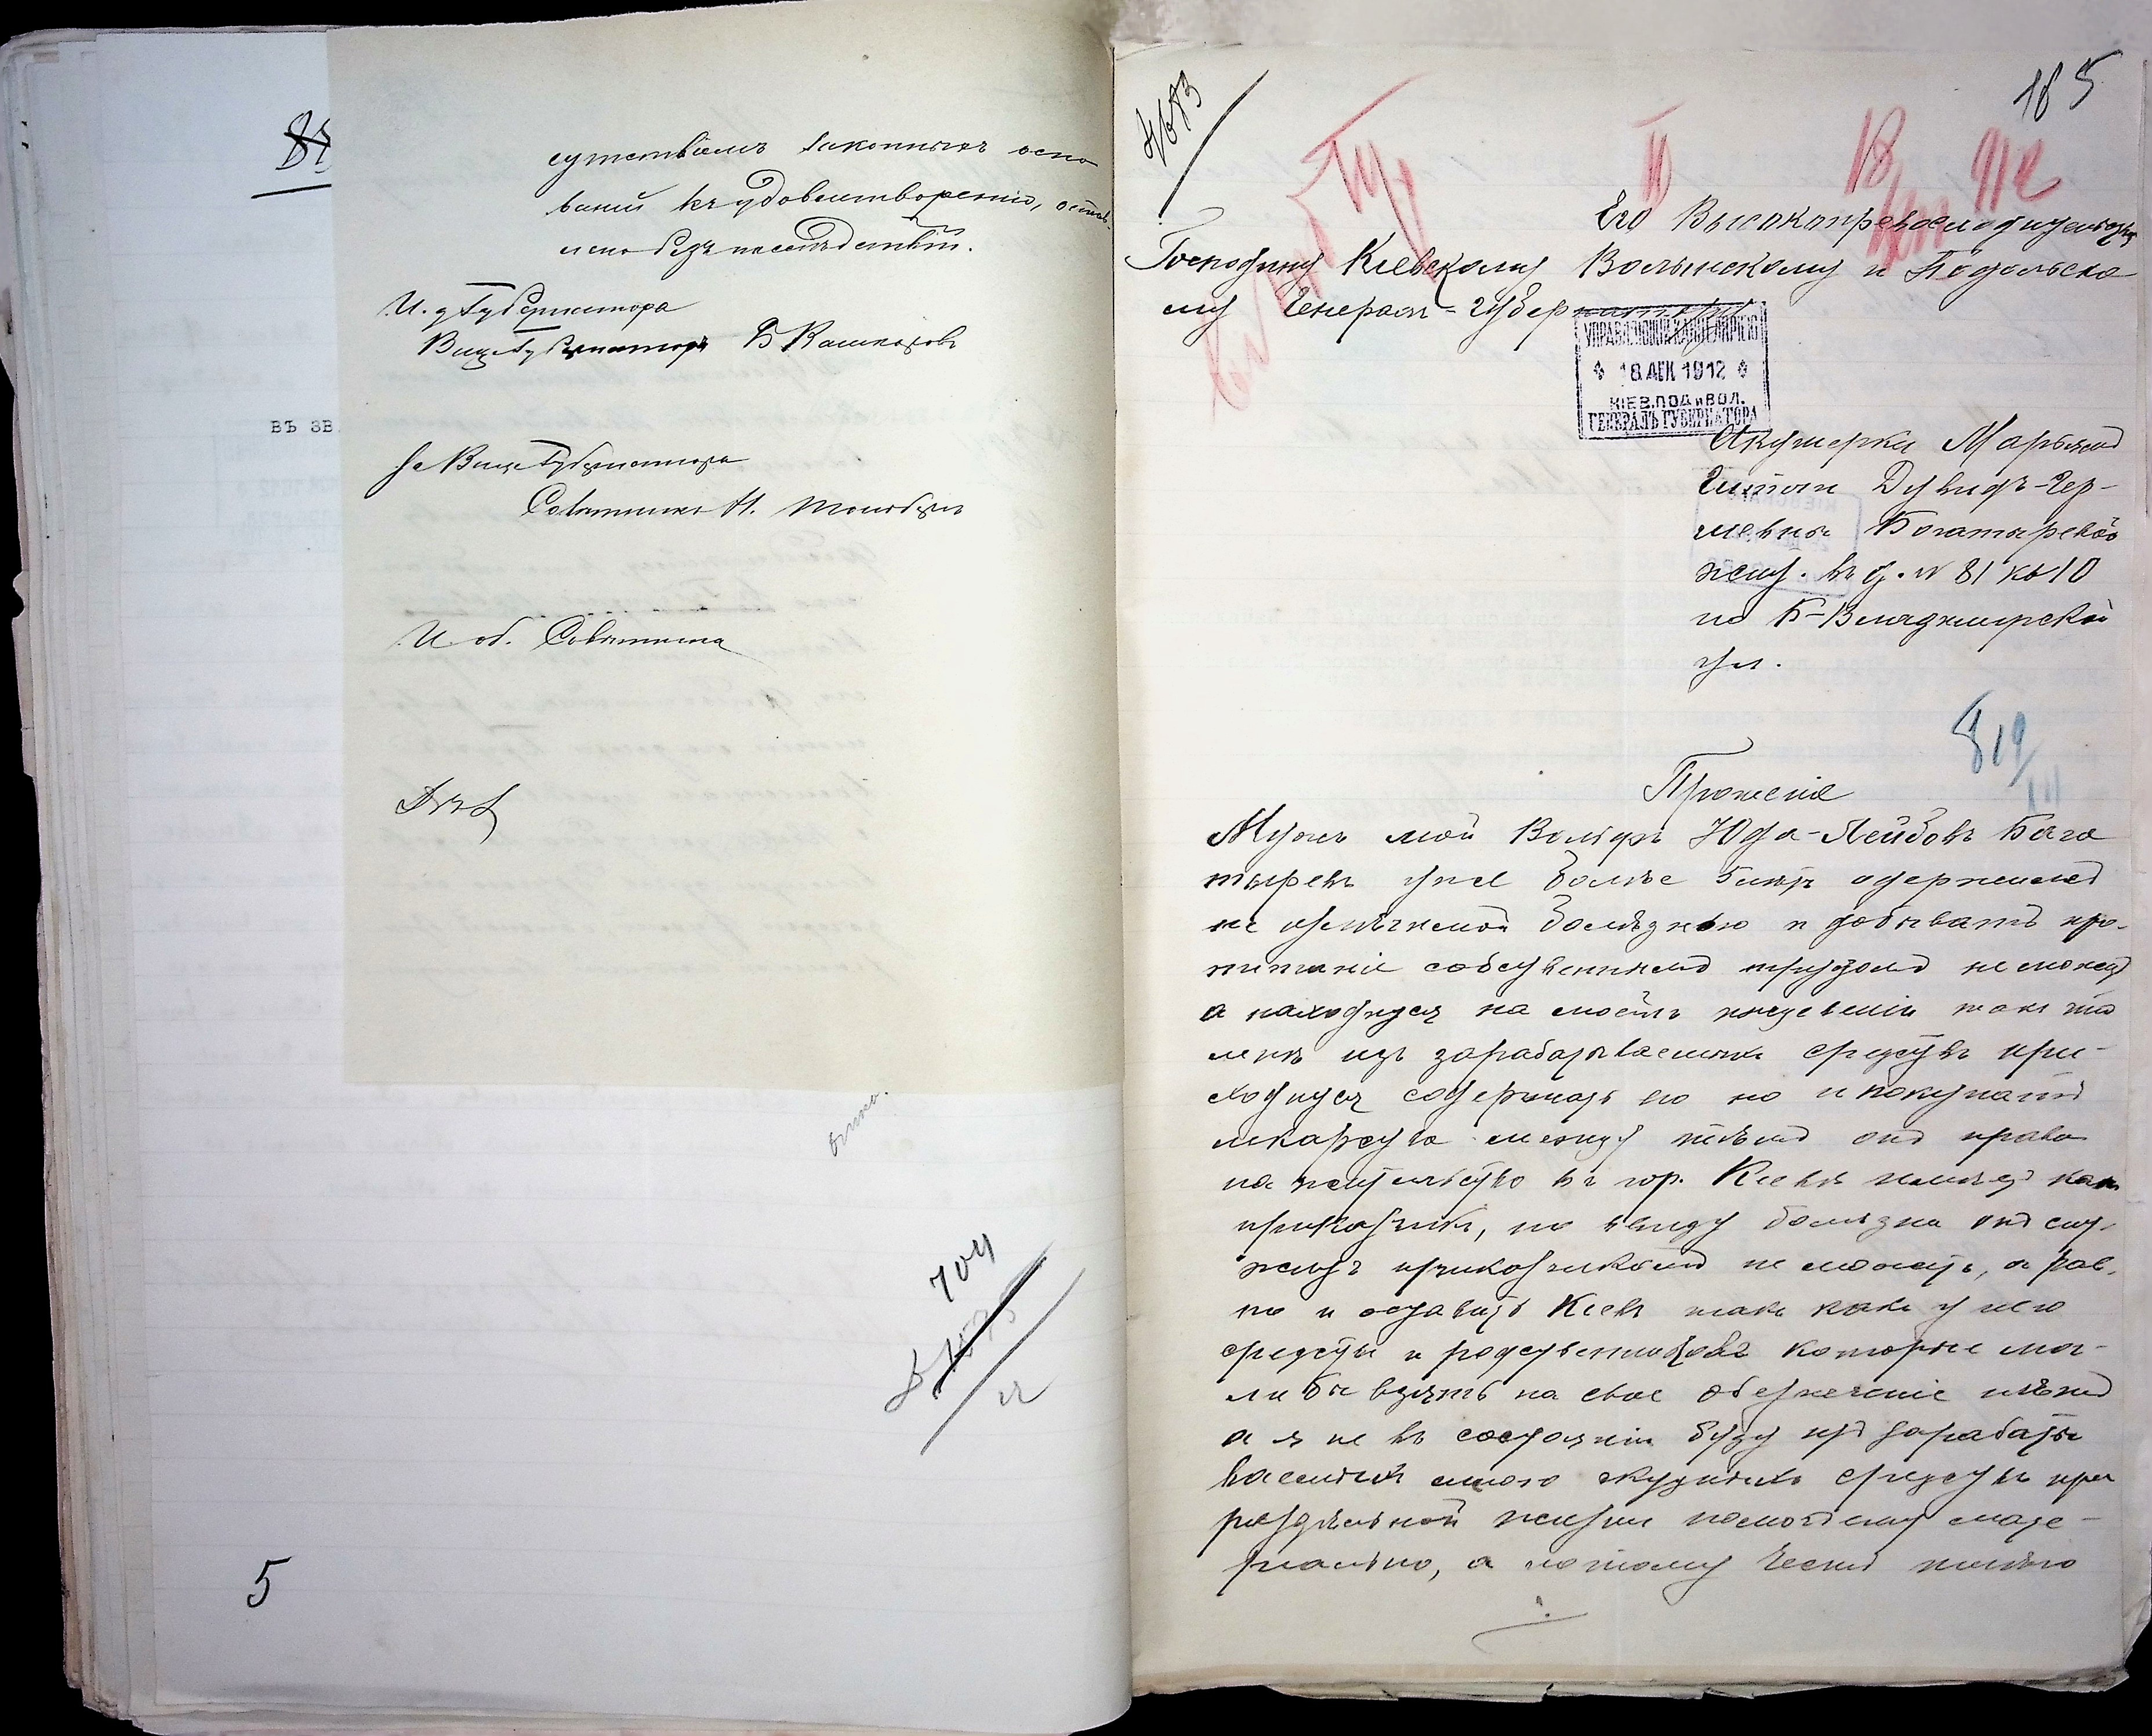 87
существіемъ законныхъ осно
ваній къ удовлетворенію, остав-
лено безъ послѣдствій.
И. д. Губернатора
Вице Губернаторъ Б Кашкаровъ
въ зв
За Вице Губернатора
Совѣтникъ Н.
И. об. Совѣтника
704
5
4683
185
18 912
Его Высокопревосходительству
Господину Кіевскому Волынскому и Подольско
му Генералъ-Губернатору
УПРАВЛЯЮЩІЙ КАНЦЕЛЯРІЕЮ
18 АПР 1912
КІЕВ. ПОД. и ВОЛ.
ГЕНЕРАЛЪ ГУБЕРНАТОРА
Акушерки Марьямъ
Гитли Дувидъ-Гер-
шевны Богатыревой
жит. въ д. № 81 кв 10
по Б-Владимирской
ул.
819
III
Прошеніе
Мужъ мой Вольфъ Юда-Лейбовъ Бога
тыревъ уже болѣе 5 лѣтъ одержимъ
не излѣчимой болѣзнью и добывать про-
питаніе собственнымъ трудомъ не можетъ
а находится на моемъ иждевеніи такъ что
мнѣ изъ зарабатываемыхъ средствъ при-
ходится содержать его но и покупать
лекарства между тѣмъ онъ право
на жительство въ гор. Кіевѣ имѣетъ какъ
прикащикъ, но ввиду болѣзни онъ слу-
жить прикащикомъ не можетъ, а рав-
но и оставить Кіевъ такъ какъ у него
средствъ и родственниковъ которые мог-
ли бы взять на свое обезпеченіе нѣтъ
а я не въ состояніи буду изъ зарабаты
ваемыхъ мною скудныхъ средствъ при
раздѣльной жизни помочь ему мате-
ріально, а потому честь имѣю